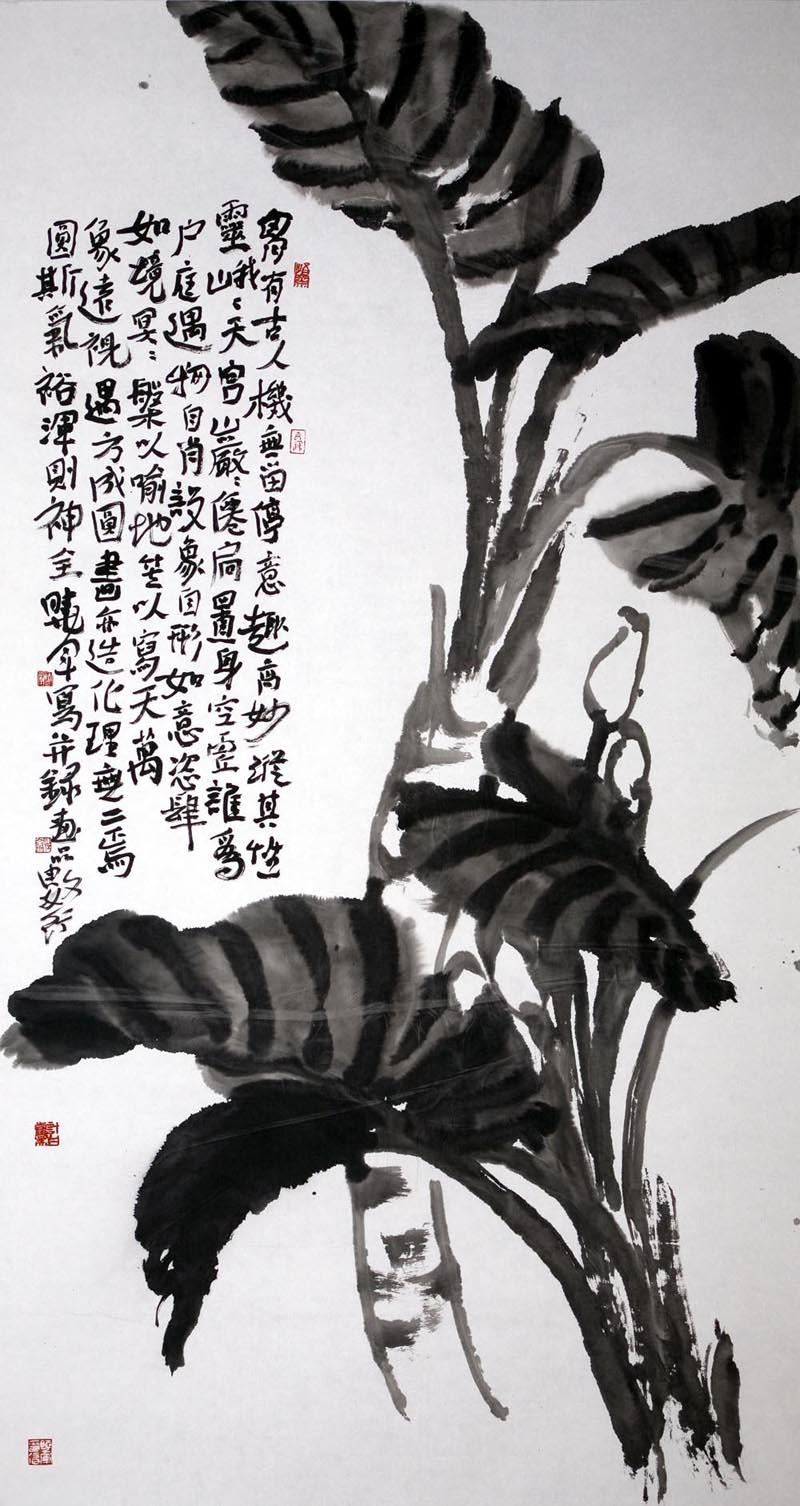 胷有古人機無留停意趣高妙縱其性
靈峨〻天宮巖〻僊扃置身空虛誰爲
户庭遇物自肖設象自形如意恣肆
如境冥〻槃以喻地笠以寫天萬
象遠視遇方成圓畫亦造化理無二焉
圓斯氣裕渾則神全曉軍寫并録畫品數